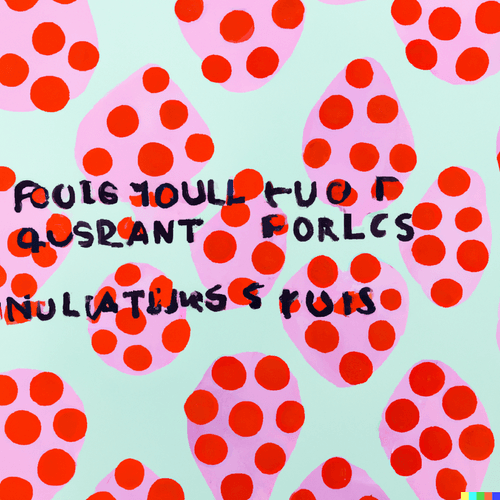 FOUIG YOULL FUOT
QUSRANT FORLCS
NULIATIJUKS S FUIS